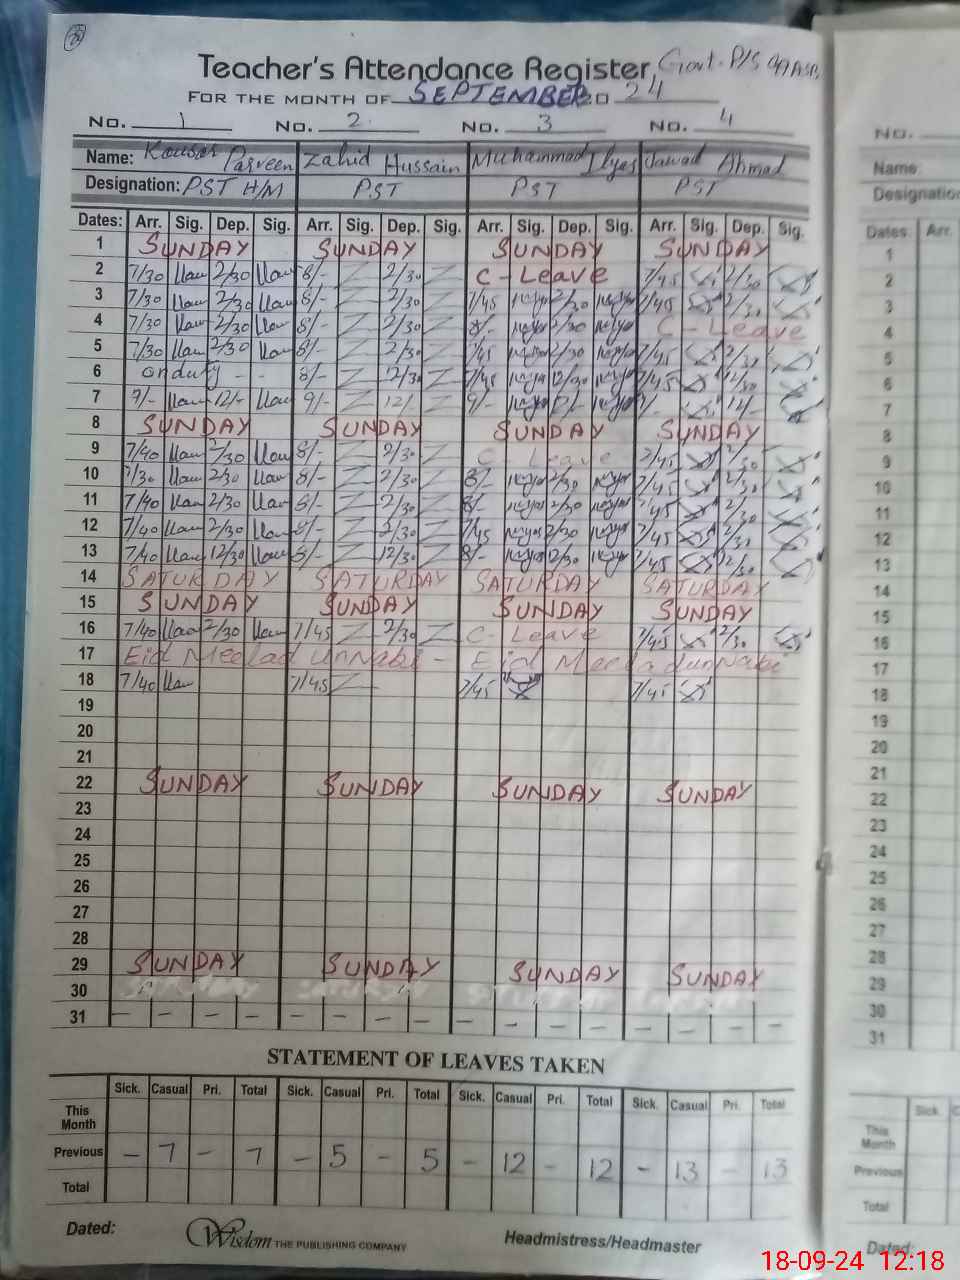 Teacher's Attendance Register, Govt. P/S
FOR THE MONTH OF SEPTEMBER 20 24
No. 1 No. 2 No. 3 No. 4
Name: Kousar Parveen Zahid Hussain Muhammad Ilyas Jawad Ahmad
Designation: PST H/M PST PST PST
Dates: Arr. Sig. Dep. Sig. Arr. Sig. Dep. Sig. Arr. Sig. Dep. Sig. Arr. Sig. Dep. Sig.
1 SUNDAY SUNDAY SUNDAY SUNDAY
2 7/30 2/30 8/- 2/30 C-Leave 7/45 2/30
3 7/30 2/30 8/- 2/30 7/45 2/30 7/45 2/30
4 7/30 2/30 8/- 2/30 8/- 2/30 C-Leave
5 7/30 2/30 8/- 2/30 7/45 2/30 7/45 2/30
6 on duty - - 8/- 12/30 7/45 12/30 7/45 12/30
7 9/- 12/- 9/- 12/- 9/- 12/- 12/-
8 SUNDAY SUNDAY SUNDAY SUNDAY
9 7/40 2/30 8/- 2/30 C-Leave 7/45 2/30
10 7/30 2/30 8/- 2/30 8/- 2/30 7/45 2/30
11 7/40 2/30 8/- 2/30 8/- 2/30 7/45 2/30
12 7/40 2/30 8/- 2/30 7/45 2/30 7/45 2/30
13 7/40 12/30 8/- 12/30 8/- 12/30 7/45 12/30
14 SATURDAY SATURDAY SATURDAY SATURDAY
15 SUNDAY SUNDAY SUNDAY SUNDAY
16 7/40 2/30 7/45 2/30 C-Leave 7/45 2/30
17 Eid Meelad unNabi - Eid Meeladunnabi
18 7/40 7/45 7/45 7/45
19
20
21
22 SUNDAY SUNDAY SUNDAY SUNDAY
23
24
25
26
27
28
29 SUNDAY SUNDAY SUNDAY SUNDAY
30
31 - - - - - - - - - - - - - - - -
STATEMENT OF LEAVES TAKEN
Sick. Casual Pri. Total Sick. Casual Pri. Total Sick. Casual Pri. Total Sick. Casual Pri. Total
This Month
Previous - 7 - 7 - 5 - 5 - 12 - 12 - 13 - 13
Total
Dated: Wisdom THE PUBLISHING COMPANY Headmistress/Headmaster
No.
Name
Designation
Dates: Arr.
1
2
3
4
5
6
7
8
9
10
11
12
13
14
15
16
17
18
19
20
21
22
23
24
25
26
27
28
29
30
31
Sick.
This Month
Previous
Total
Dated:
18-09-24 12:18